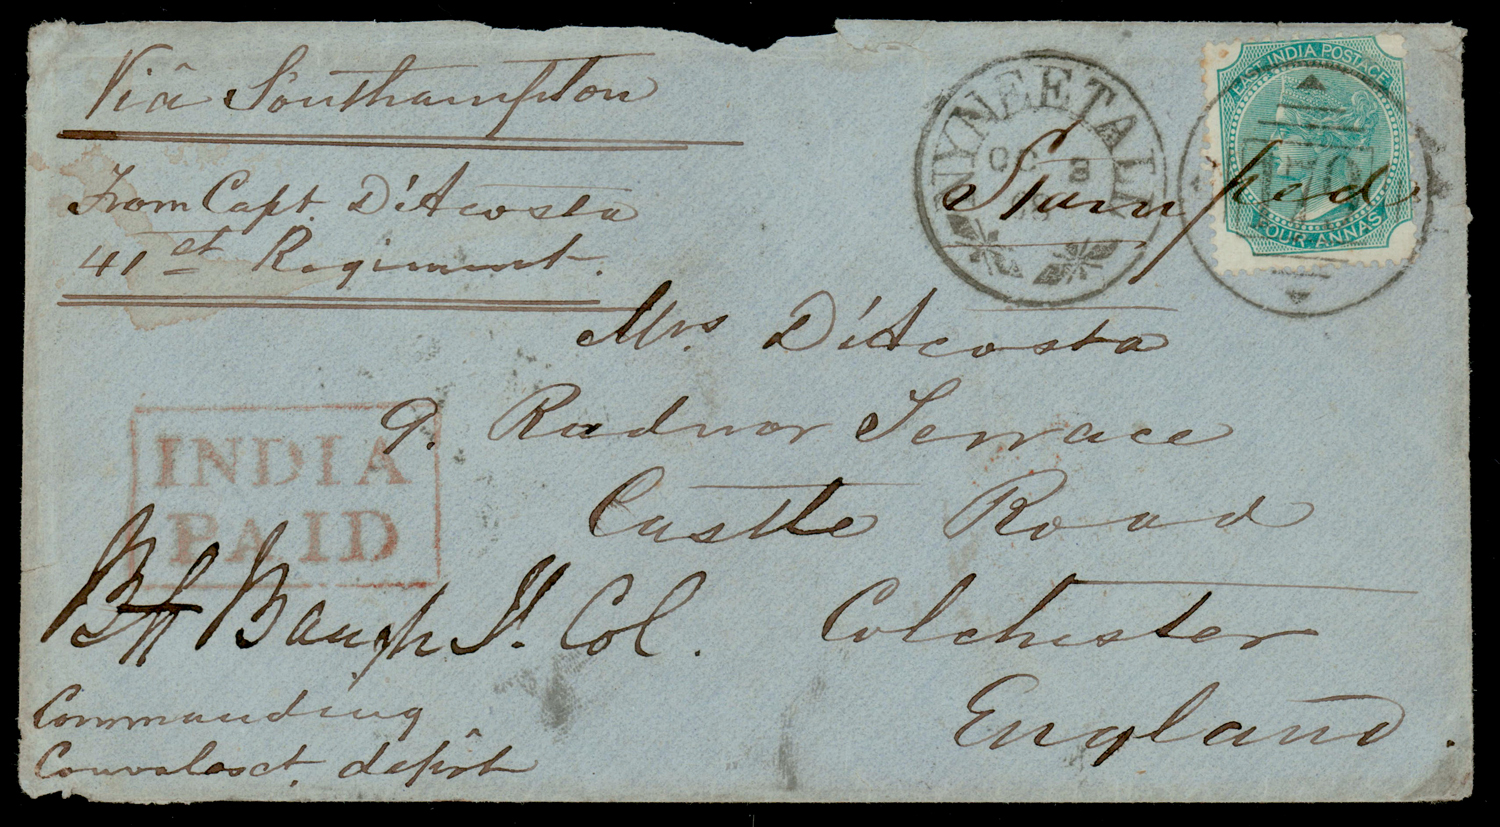 Viâ Southampton
From Capt. D'Acosta
41st Regiment.
NYNEETALL
OC 8
Stamped
EAST INDIA POSTAGE
FOUR ANNAS
Mrs D'Acosta
9. Radnor Terrace
Castle Road
Colchester
England.
INDIA
PAID
Baugh Lt. Col.
Commanding
Convalesct. depôt